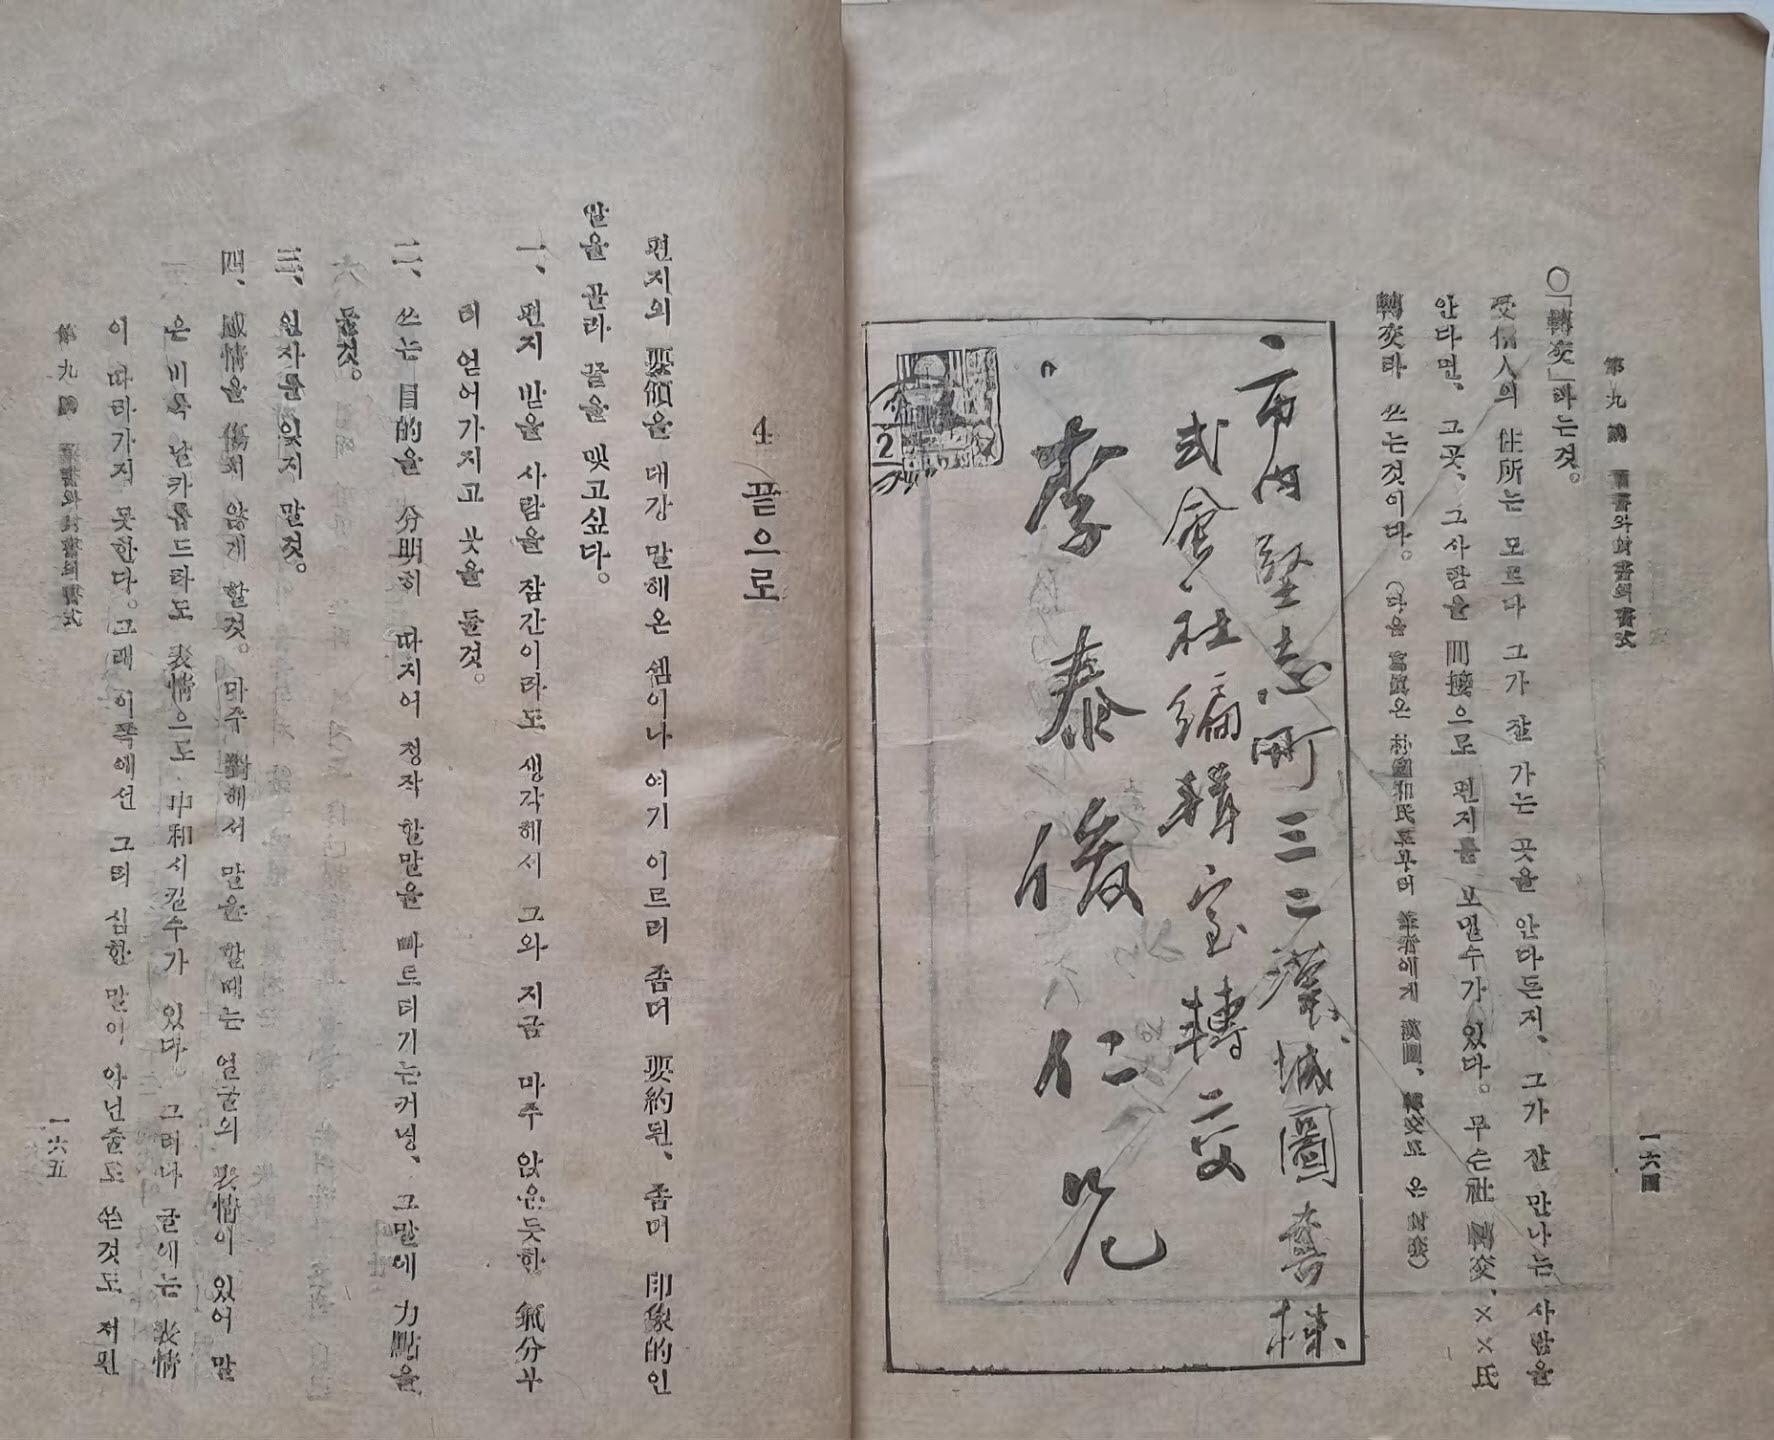 第九講 葉書와封書의書式
一六四
○「轉交」라는것。
受信人의 住所는 모르다 그가 잘 가는 곳을 안다든지、그가 잘 만나는 사람을
안다면、그곳、그사람을 間接으로 편지를 보낼수가 있다。무슨社 轉交、××氏
轉交라 쓰는것이다。(다음 寫眞은 朴 和氏로부터 筆者에게 漢圖、轉交로 온 封套)
市內堅志町三二漢城圖書株
式會社編輯室轉交
李泰俊仁兄
2
4 끝으로
편지의 要領을 대강 말해온 셈이나 여기 이르러 좀머 要約된、좀머 印象的인
말을 골라 끝을 맺고싶다。
一、편지 받을 사람을 잠간이라도 생각해서 그와 지금 마주 앉은듯한 氣分부
터 얻어가지고 붓을 들것。
二、쓰는 目的을 分明히 따지어 정작 할말을 빠트리기는커녕、그말에 力點을
둘것。
三、인사를잊지 말것。
四、感情을 傷치 않게 할것。마주 對해서 말을 할때는 얼굴의 表情이 있어 말
은 비록 날카롭드라도 表情으로 中和시킬수가 있다。그러나 글에는 表情
이 따라가지 못한다。그래 이쪽에선 그리 심한 말이 아닌줄로 쓴것도 저편
第九講 葉書와封書의書式
一六五